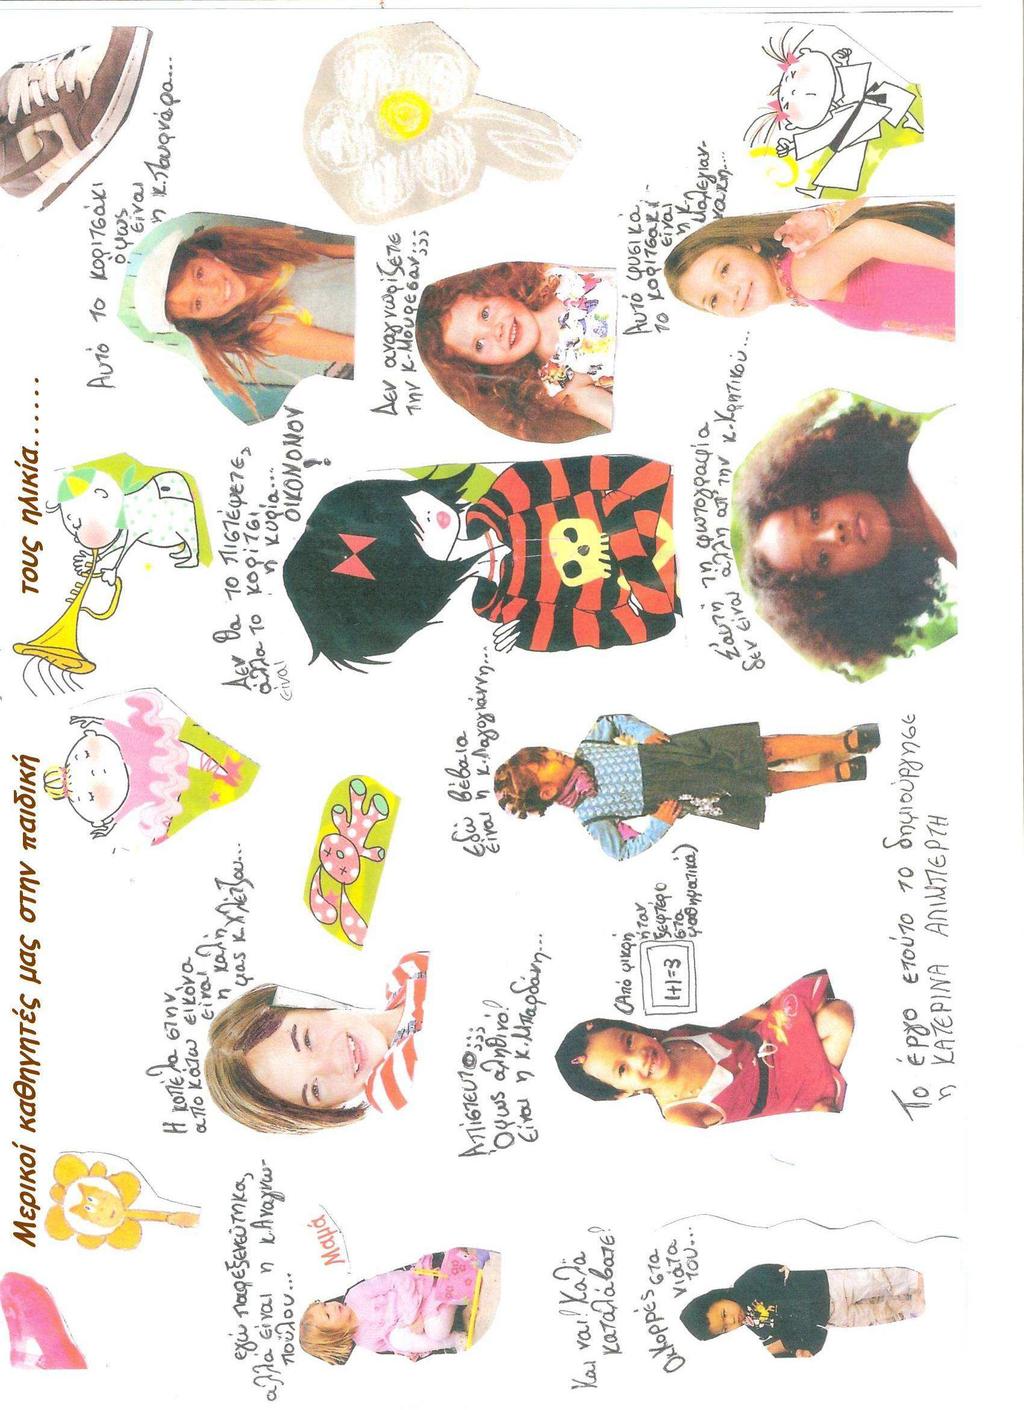 Μερικοί καθηγητές μας στην παιδική τους ηλικία.......
εγώ παραξενεύτηκα,
αλλα είναι η κ.Αναγνω-
πούλου...
Μαμά
Η κοπέλα στην
από κάτω εικόνα
είναι
η καλή
μας κ.Χλέτζου...
Δεν θα το πιστέψετε,
άλλα το κορίτσι
είναι η κυρία...
ΟΙΚΟΝΟΜΟΥ
!
Αυτό το κοριτσάκι
όμως
είναι
η κ.
Δεν αναγνωρίζετε
την κ.Μουρεσαν;;;
Και ναι! Καλά
καταλάβατε!
Ο κορρές στα
νιάτα
του...
Απίστευτο;;;
Όμως αληθινό!
Είναι η κ.Μπαρδάκη...
(Από μικρή
ήταν
ξεφτέρι
στα
μαθηματικά)
1+1=3
Εδώ βέβαια
είναι η κ.Λαγογιάννη...
Σ'αυτή τη φωτογραφία
δεν είναι άλλη απ' την κ.Κρητικού...
Αυτό φυσικά
το κοριτσάκι
είναι
η κ.
Μαλεγιαν-
νακη...
Το έργο ετούτο το δημιούργησε
η ΚΑΤΕΡΙΝΑ ΑΛΙΜΠΕΡΤΗ